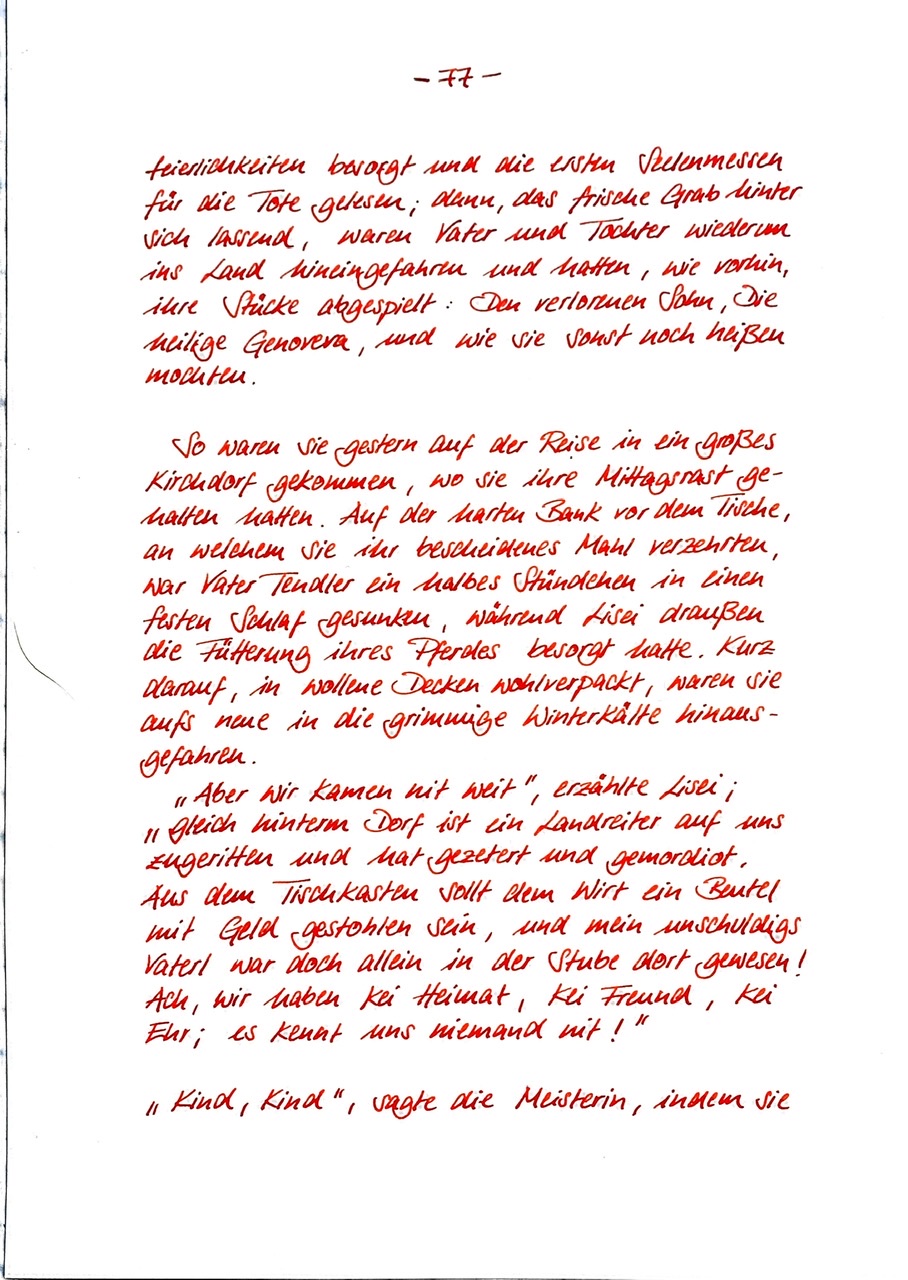 – 77 –
feierlichkeiten besorgt und die ersten Seelenmessen
für die Tote gelesen; denn, das frische Grab hinter
sich lassend, waren Vater und Tochter wiederum
ins Land hineingefahren und hatten, wie vorhin,
ihre Stücke abgespielt: Den verlorenen Sohn, Die
heilige Genoveva, und wie sie sonst noch heißen
mochten.
So waren sie gestern auf der Reise in ein großes
Kirchdorf gekommen, wo sie ihre Mittagsrast ge-
halten hatten. Auf der harten Bank vor dem Tische,
an welchem sie ihr bescheidenes Mahl verzehrten,
war Vater Tendler ein halbes Stündchen in einen
festen Schlaf gesunken, während Lisei draußen
die Fütterung ihres Pferdes besorgt hatte. Kurz
darauf, in wollene Decken wohlverpackt, waren sie
aufs neue in die grimmige Winterkälte hinaus-
gefahren.
„Aber wir kamen nit weit“, erzählte Lisei;
„gleich hinterm Dorf ist ein Landreiter auf uns
zugeritten und hat gezetert und gemordiot.
Aus dem Tischkasten sollt dem Wirt ein Beutel
mit Geld gestohlen sein, und mein unschuldigs
Vaterl war doch allein in der Stube dort gewesen!
Ach, wir haben kei Heimat, kei Freund, kei
Ehr; es kennt uns niemand nit!“
„Kind, Kind“, sagte die Meisterin, indem sie